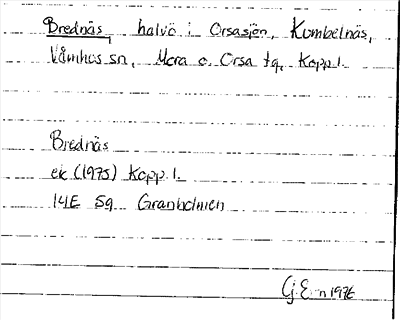 Brednäs, halvö i Orsasjön, Kumbelnäs,
Våmhus sn, Mora o. Orsa tg, Kopp. l.
Brednäs
ek (1975) Kopp. l.
14E 5g Granholmen
1976